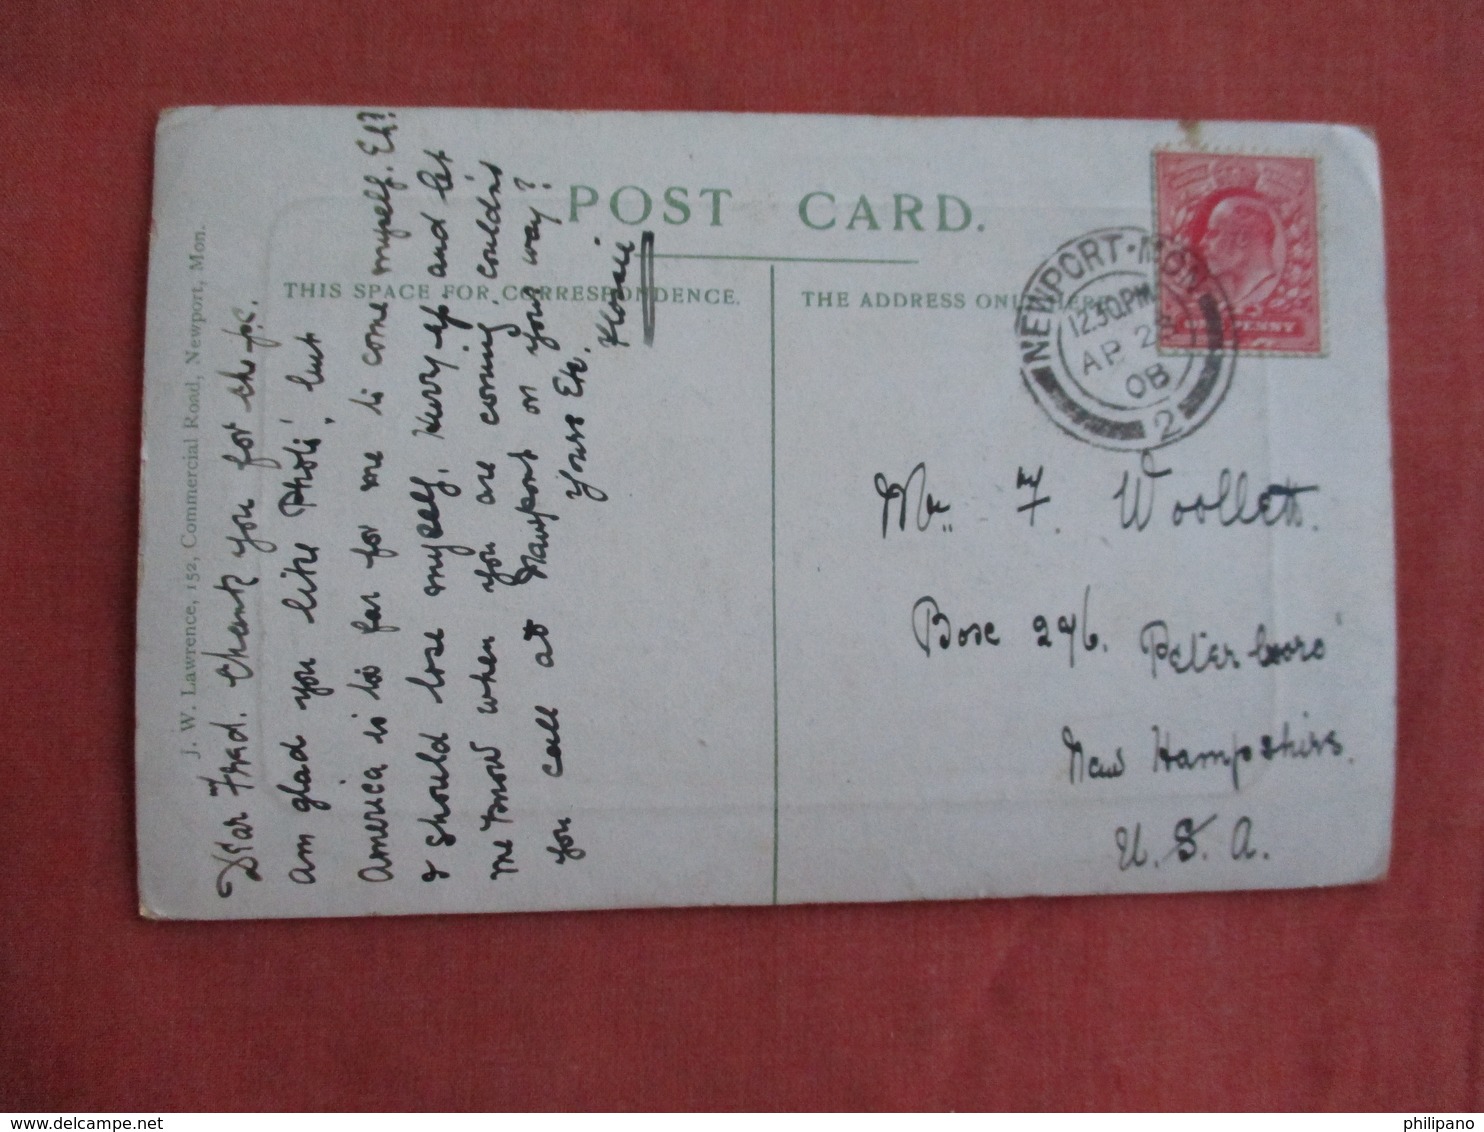 J. W. Lawrence, 152, Commercial Road, Newport, Mon.
POST CARD.
THIS SPACE FOR CORRESPONDENCE.
THE ADDRESS ONLY HERE
Dear Fred. thank you for the p.c.
am glad you like 'Photo', but
America is to far for me to come myself. Eh?
& should lose myself. Hurry up and let
me know when you are coming. couldn't
you call at Newport on your way?
Yours Etc.
Florrie
NEWPORT·MON
12.30PM
AP 2
08
2
ONE PENNY
Mr. F. Woollett.
Box 296. Peterboro'
New Hampshire.
U. S. A.
www.delcampe.net
philipano